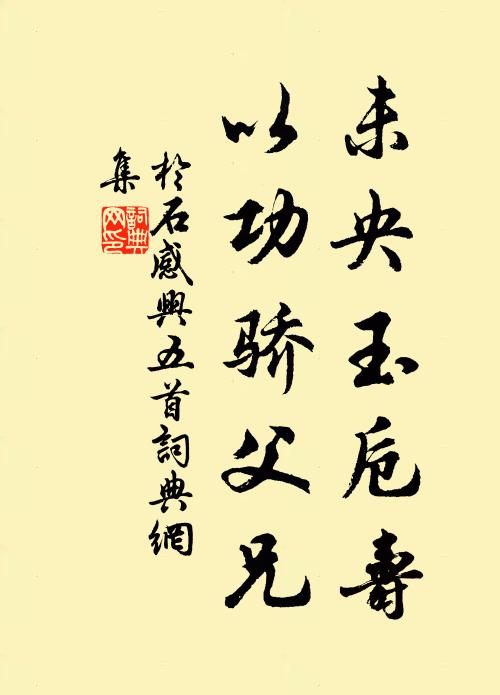 未央玉卮壽
以功骄父兄
於石感興五首詞典網
集
詞典
网印